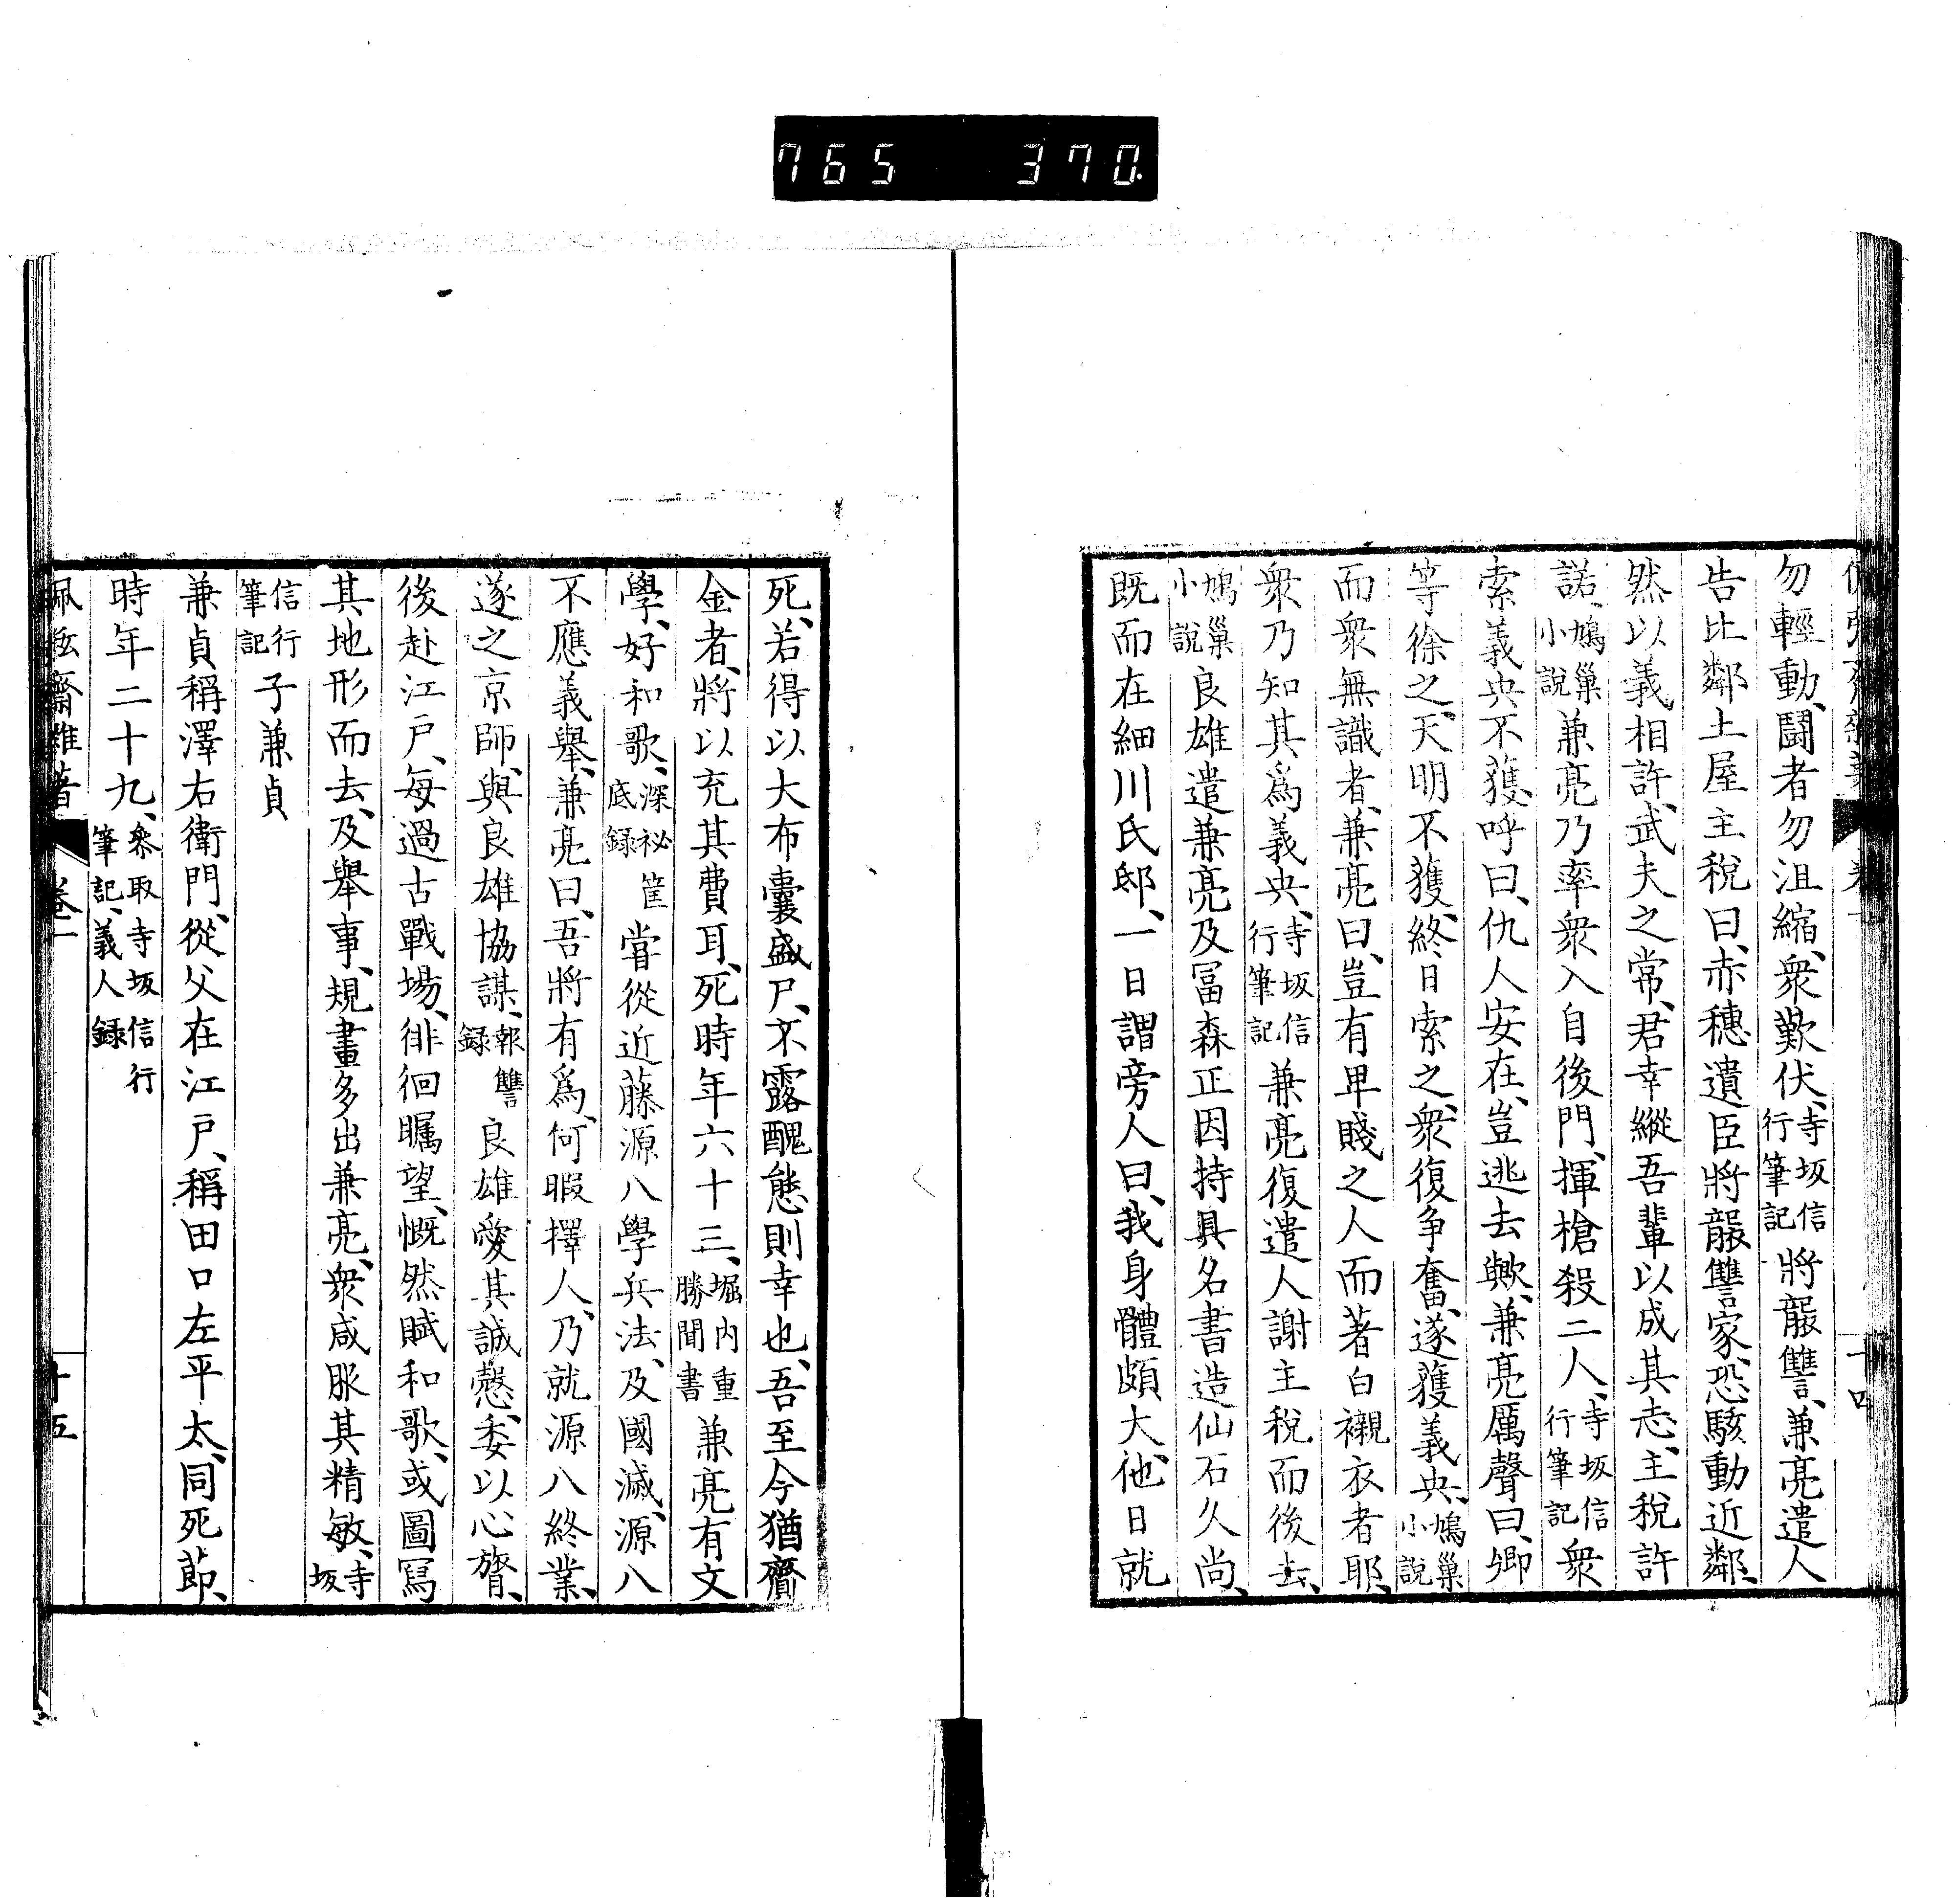 765 370
勿輕動、鬪者勿沮縮、衆歎伏、寺坂信行筆記將報讐、兼亮遣人
告比鄰土屋主税曰、赤穗遺臣將報讐家、恐駭動近鄰、
然以義相許、武夫之常、君幸縱吾輩以成其志、主税許
諾、鳩巢小說兼亮乃率衆入自後門、揮槍殺二人、寺坂信行筆記衆
索義央不獲、呼曰、仇人安在、豈逃去歟、兼亮厲聲曰、卿
等徐之、天明不獲、終日索之、衆復争奮、遂獲義央、鳩巢小說
而衆無識者、兼亮曰、豈有卑賤之人而著白襯衣者耶、
衆乃知其爲義央、寺坂信行筆記兼亮復遣人謝主税而後去、
鳩巢小說良雄遣兼亮及冨森正因持具名書造仙石久尚、
既而在細川氏邸、一日謂旁人曰、我身體頗大、他日就
死、若得以大布囊盛尸、不露醜態則幸也、吾至今猶齎
金者、將以充其費耳、死時年六十三、堀内重勝聞書兼亮有文
學、好和歌、深祕筐底録嘗從近藤源八學兵法、及國滅、源八
不應義舉、兼亮曰、吾將有爲、何暇擇人、乃就源八終業、
遂之京師、與良雄協謀、報讐録良雄愛其誠愨、委以心膂、
後赴江戸、每過古戰場、徘徊矚望、慨然賦和歌、或圖寫
其地形而去、及舉事、規畫多出兼亮、衆咸服其精敏、寺坂
信行筆記子兼貞
兼貞稱澤右衛門、從父在江戸、稱田口左平太、同死節、
時年二十九、叅取寺坂信行筆記、義人録
佩弦齋雜著 卷一 十五